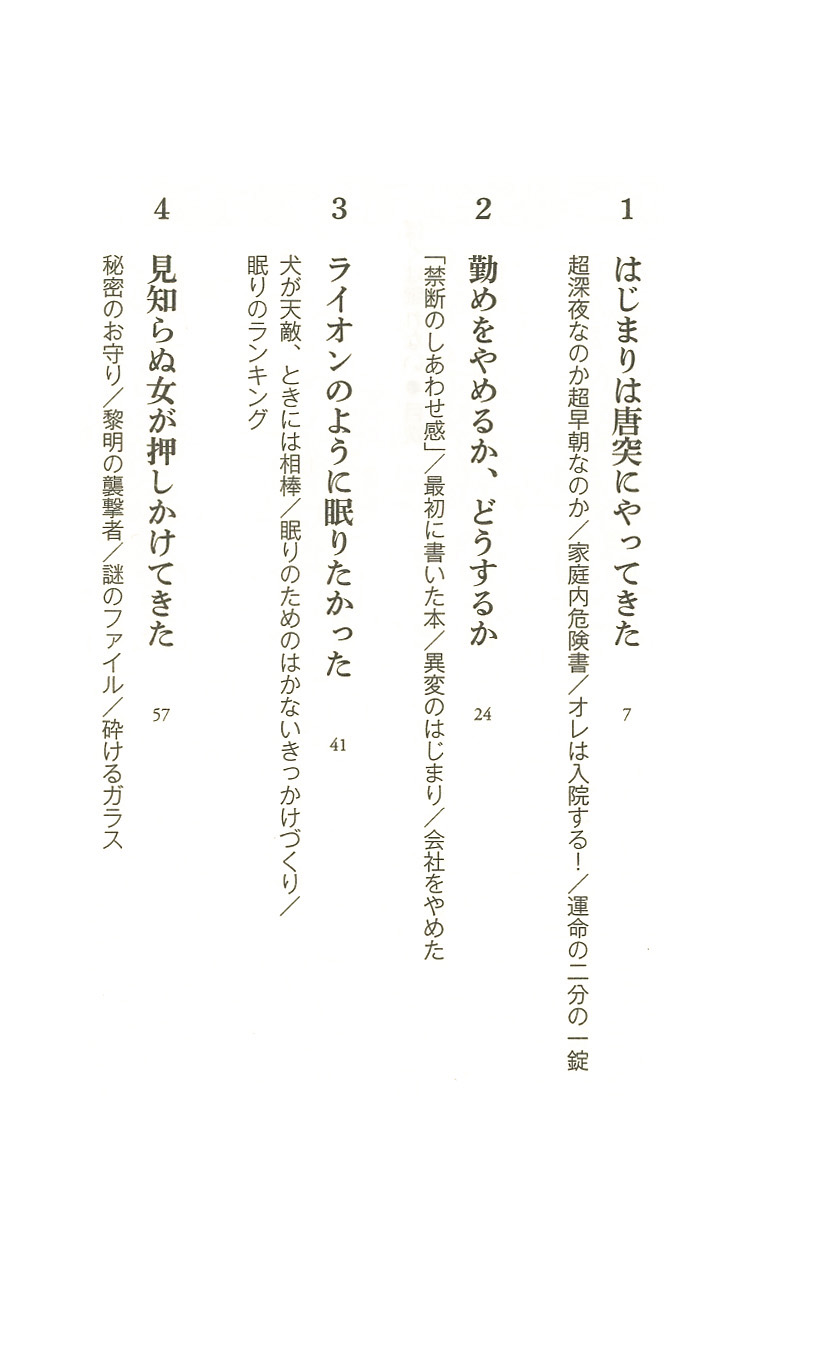 1 はじまりは唐突にやってきた 7
超深夜なのか超早朝なのか／家庭内危険書／オレは入院する！／運命の二分の一錠
2 勤めをやめるか、どうするか 24
「禁断のしあわせ感」／最初に書いた本／異変のはじまり／会社をやめた
3 ライオンのように眠りたかった 41
犬が天敵、ときには相棒／眠りのためのはかないきっかけづくり／
眠りのランキング
4 見知らぬ女が押しかけてきた 57
秘密のお守り／黎明の襲撃者／謎のファイル／砕けるガラス